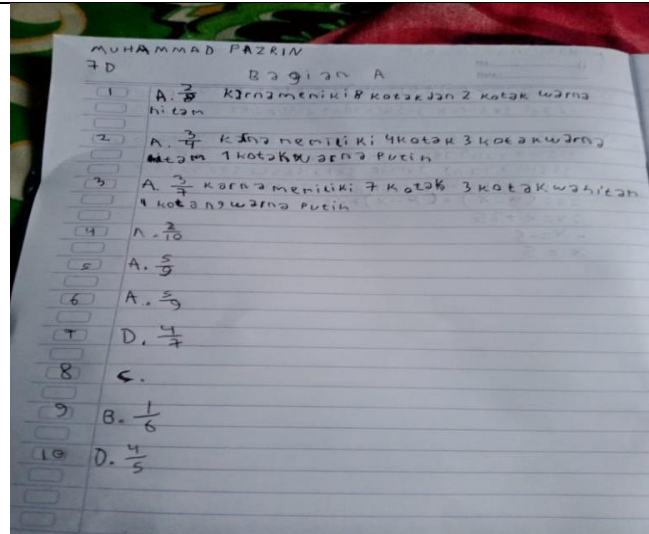 MUHAMMAD PAZRIN
7D
Bagian A
1 A. 2/8 karna meniki 8 kotak dan 2 kotak warna
hitam
2 A. 3/4 karna nemiliki 4 kotak 3 kotak warna
hitam 1 kotak warna Putih
3 A. 3/7 karna memiliki 7 kotak 3 kotak wahitan
4 kotang warna Putih
4 A. 2/10
5 A. 5/9
6 A. 5/9
7 D. 4/7
8 C.
9 B. 1/6
10 D. 4/5